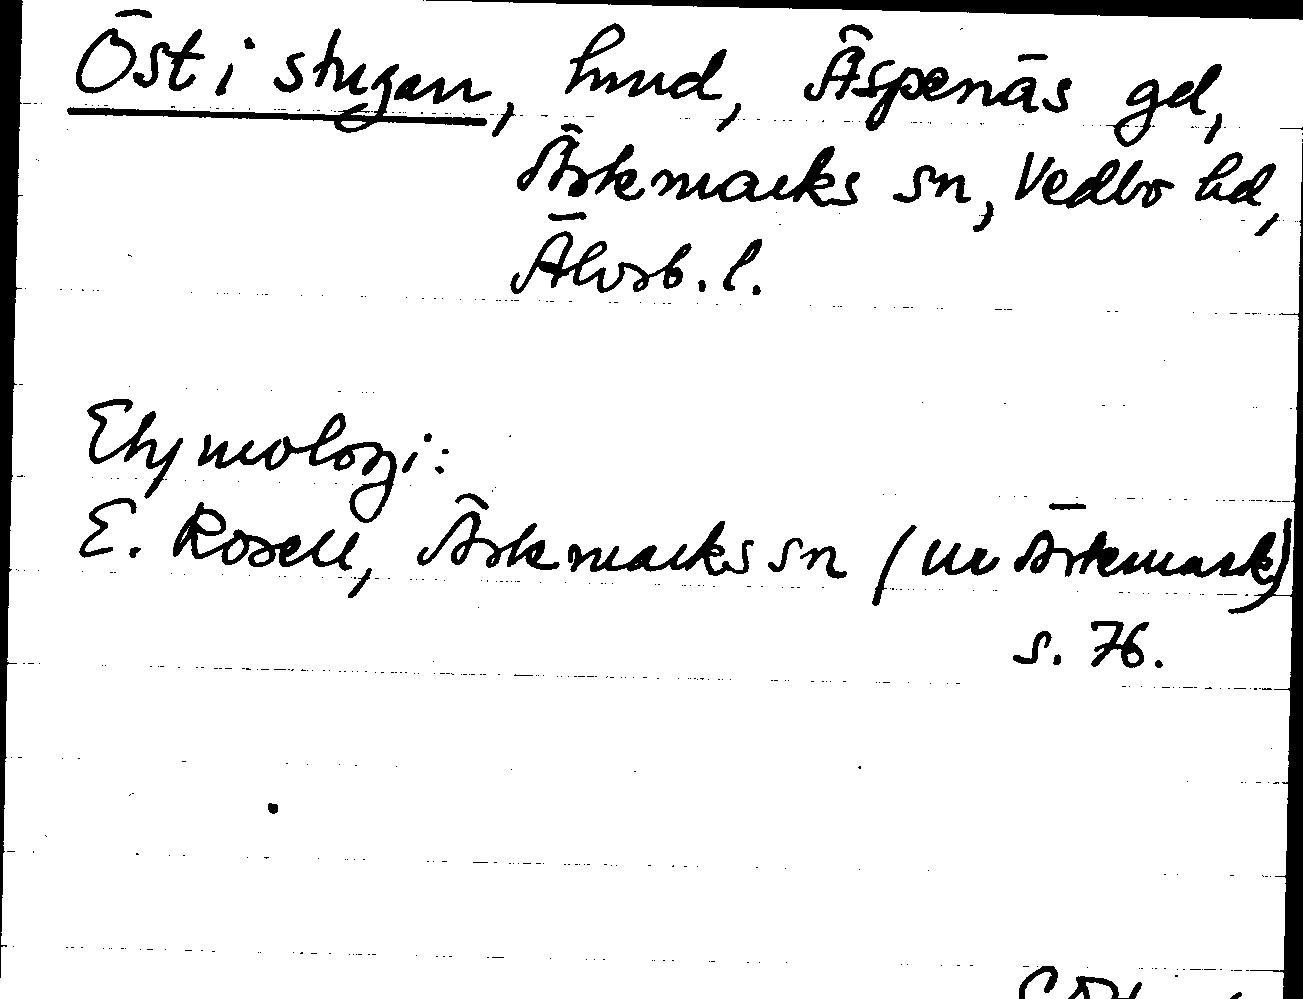 Öst i stugan, hmd, Äspenäs gd,
Ärtemarks sn, Vedbo hd,
Älvsb. l.
Etymologi:
E. Rosell, Ärtemarks sn (ur Ärtemark)
s. 76.